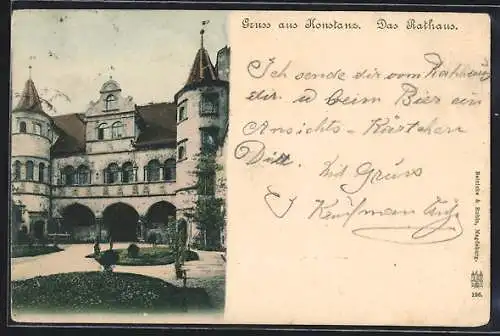 Gruss aus Konstanz. Das Rathaus.
Ich sende dir vom
dir. u beim Bier ein
Ansichts-Kärtchen
Mit Gruss
Kaufmann
Reinicke & Rubin, Magdeburg.
196.